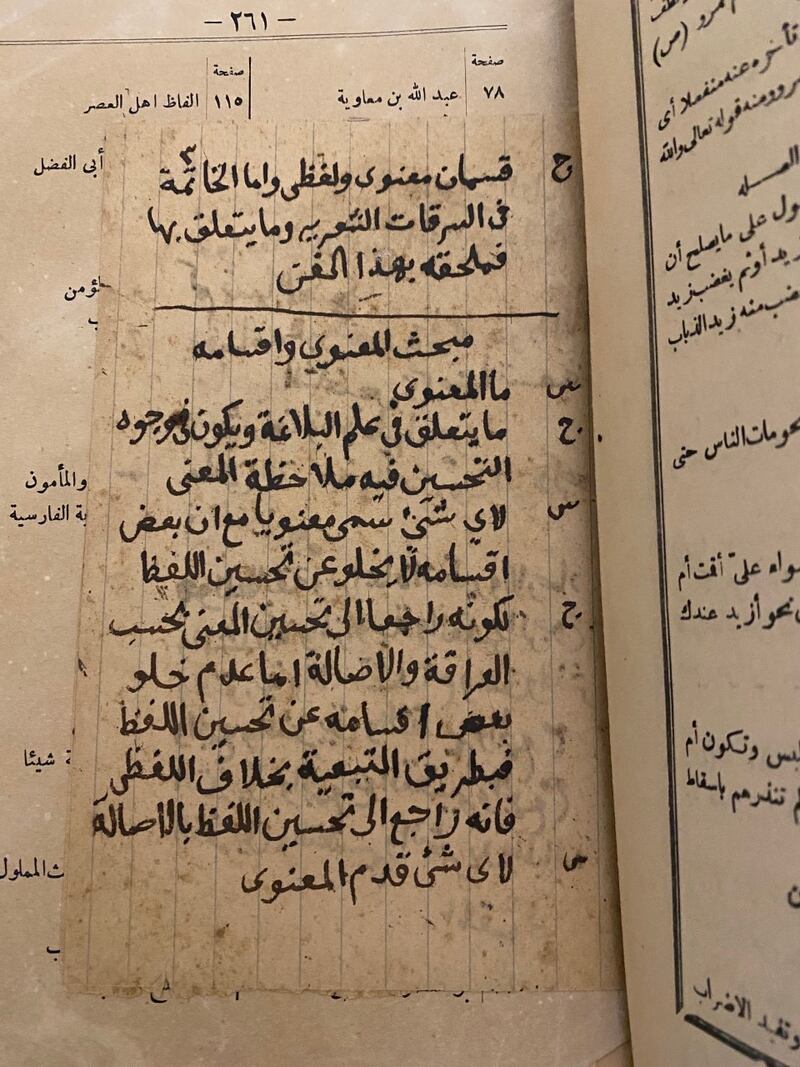 — ٢٦١ —
صفحة
صفحة
٧٨ عبد الله بن معاوية
١١٥ الفاظ اهل العصر
أبى الفضل
ؤمن
ب
والمأمون
ة الفارسية
ة شيئا
ث المملول
ب
ج قسمان معنوى ولفظى واما الخاتمة ٣
فى السرقات الشعريه وما يتعلق بها
فملحقه بهذا الفن
مبحث المعنوي واقسامه
س ما المعنوي
ج ما يتعلق في علم البلاغة ويكون فى وجوه
التحسين فيه ملاحظة المعنى
س لاي شئ سمى معنويا مع ان بعض
اقسامه لا يخلو عن تحسين اللفظ
ج لكونه راجعا الى تحسين المعنى بحسب
العراقة والاصالة اما عدم خلو
بعض اقسامه عن تحسين اللفظ
فبطريق التبعية بخلاف اللفظى
فانه راجع الى تحسين اللفظ بالاصالة
س لاى شئ قدم المعنوى
مرو (ص)
تأخره عنه منفعلا أى
رو ومنه قوله تعالى والله
الصله
ول على ما يصلح أن
زيد أو تم يغضب زيد
ضب منه زيد الذباب
حومات الناس حتى
سواء علىّ أقت أم
نحو أزيد عندك
لبس وتكون أم
لم تنذرهم باسقاط
ن
وتفيد الاضراب